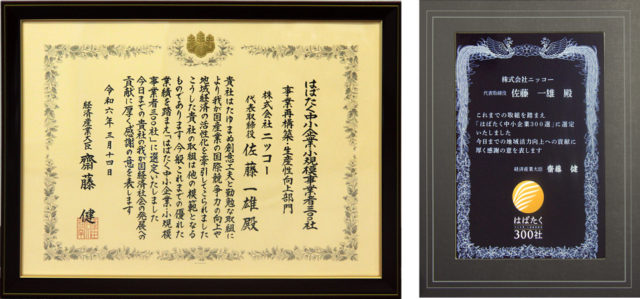 はばたく中小企業・小規模事業者三〇〇社
事業再構築・生産性向上部門
株式会社ニッコー
代表取締役 佐藤 一雄 殿
貴社はたゆまぬ創意工夫と勤勉な取組に
より我が国産業の国際競争力の向上や
地域経済の活性化を牽引してこられました
こうした貴社の取組は他の模範となる
ものであります 今般これまでの優れた
業績を踏まえ「はばたく中小企業・小規模
事業者三〇〇社」に選定いたしました
今日までの貴社の我が国経済社会の発展への
貢献に厚く感謝の意を表します
令和六年三月十四日
経済産業大臣 齋藤 健
株式会社ニッコー
代表取締役 佐藤 一雄 殿
これまでの取組を踏まえ
「はばたく中小企業300選」に選定
いたしました
今日までの地域活力向上への貢献に
厚く感謝の意を表します
経済産業大臣 齋藤 健
はばたく
300社